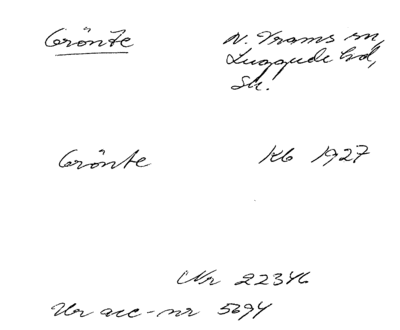 Grönte
N. Frams sn,
Luggude hd,
Sk.
Grönte Kb 1927
Nr 22346
Ur acc-nr 5694